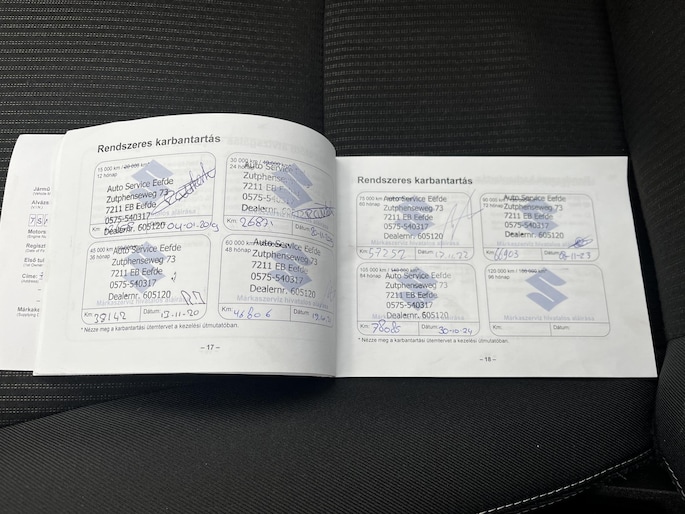 Rendszeres karbantartás
15 000 km / 20 000 km
12 hónap
Auto Service Eefde
Zutphenseweg 73
7211 EB Eefde
0575-540317
Dealernr. 605120
04-01-2019
30 000 km / 40 000 km
24 hónap
Auto Service
Zutphenseweg 73
7211 EB Eefde
Km:
Dátum:
45 000 km
36 hónap
Auto Service Eefde
Zutphenseweg 73
7211 EB Eefde
0575-540317
Dealernr. 605120
Km: 38142
Dátum: 13-11-20
60 000 km
48 hónap
Auto Service
Zutphenseweg 73
7211 EB Eefde
0575-540317
Dealernr. 605120
Km: 46806
Dátum:
* Nézze meg a karbantartási ütemtervet a kezelési útmutatóban.
– 17 –
Rendszeres karbantartás
75 000 km
60 hónap
Auto Service Eefde
Zutphenseweg 73
7211 EB Eefde
0575-540317
Dealernr. 605120
Márkaszerviz hivatalos aláírása
Km: 57257
Dátum:
90 000 km
72 hónap
Auto Service Eefde
Zutphenseweg 73
7211 EB Eefde
0575-540317
Dealernr. 605120
Km: 66903
Dátum:
105 000 km
84 hónap
Auto Service Eefde
Zutphenseweg 73
7211 EB Eefde
0575-540317
Dealernr. 605120
Km: 78085
Dátum: 30-10-24
120 000 km
96 hónap
Márkaszerviz hivatalos aláírása
Km:
Dátum:
* Nézze meg a karbantartási ütemtervet a kezelési útmutatóban.
– 18 –